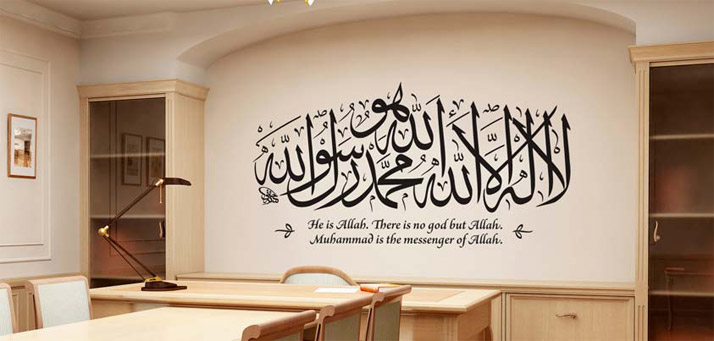 هو الله
لا إله إلا الله محمد رسول الله
He is Allah. There is no god but Allah.
Muhammad is the messenger of Allah.